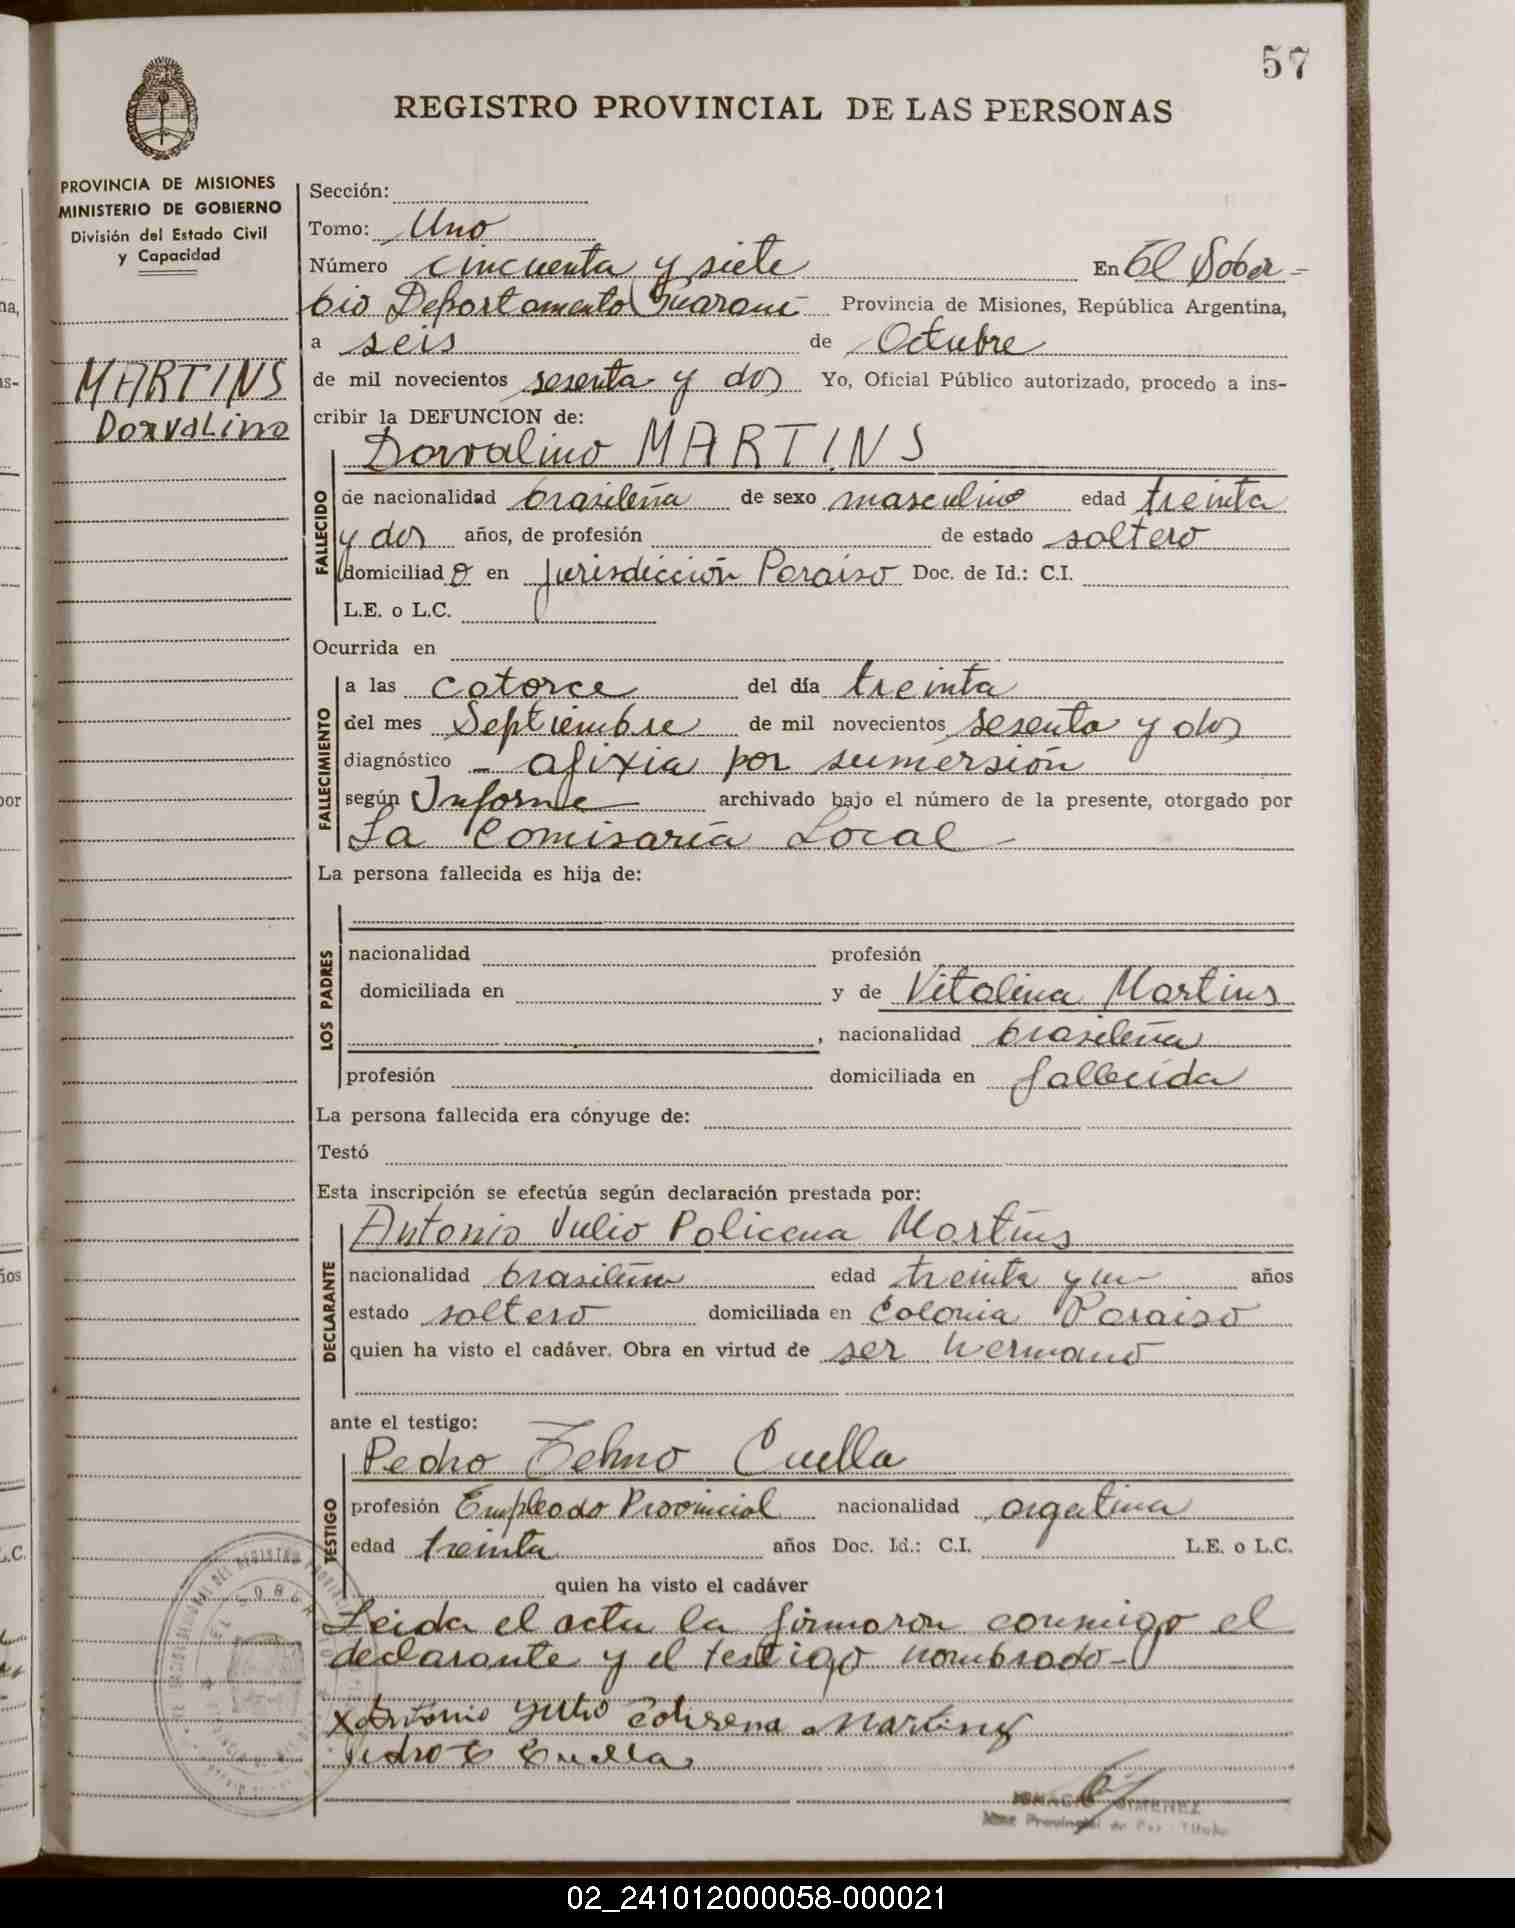 57
REGISTRO PROVINCIAL DE LAS PERSONAS
PROVINCIA DE MISIONES
MINISTERIO DE GOBIERNO
División del Estado Civil
y Capacidad
MARTINS
Dorvalino
Sección:
Tomo: Uno
Número cincuenta y siete En El Sober-
bio Departamento Guaraní Provincia de Misiones, República Argentina,
a seis de Octubre
de mil novecientos sesenta y dos Yo, Oficial Público autorizado, procedo a ins-
cribir la DEFUNCION de:
Dorvalino MARTINS
FALLECIDO
de nacionalidad brasileña de sexo masculino edad treinta
y dos años, de profesión de estado soltero
domiciliado en jurisdicción Paraiso Doc. de Id.: C.I.
L.E. o L.C.
Ocurrida en
FALLECIMIENTO
a las catorce del día treinta
del mes Septiembre de mil novecientos sesenta y dos
diagnóstico - afixia por sumersión
según Informe archivado bajo el número de la presente, otorgado por
La Comisaría Local
La persona fallecida es hija de:
LOS PADRES
nacionalidad profesión
domiciliada en y de Vitalina Martins
, nacionalidad brasileña
profesión domiciliada en fallecida
La persona fallecida era cónyuge de:
Testó
Esta inscripción se efectúa según declaración prestada por:
Antonio Julio Policena Martins
DECLARANTE
nacionalidad brasileña edad treinta y un años
estado soltero domiciliada en Colonia Paraiso
quien ha visto el cadáver. Obra en virtud de ser hermano
ante el testigo:
Pedro Telmo Cuella
TESTIGO
profesión Empleado Provincial nacionalidad argatina
edad treinta años Doc. Id.: C.I. L.E. o L.C.
quien ha visto el cadáver
Leida el acta la firmaron conmigo el
declarante y el testigo nombrado-
Antonio Julio Martins
Pedro T Cuella
IGNACIO JIMENEZ
02_241012000058-000021